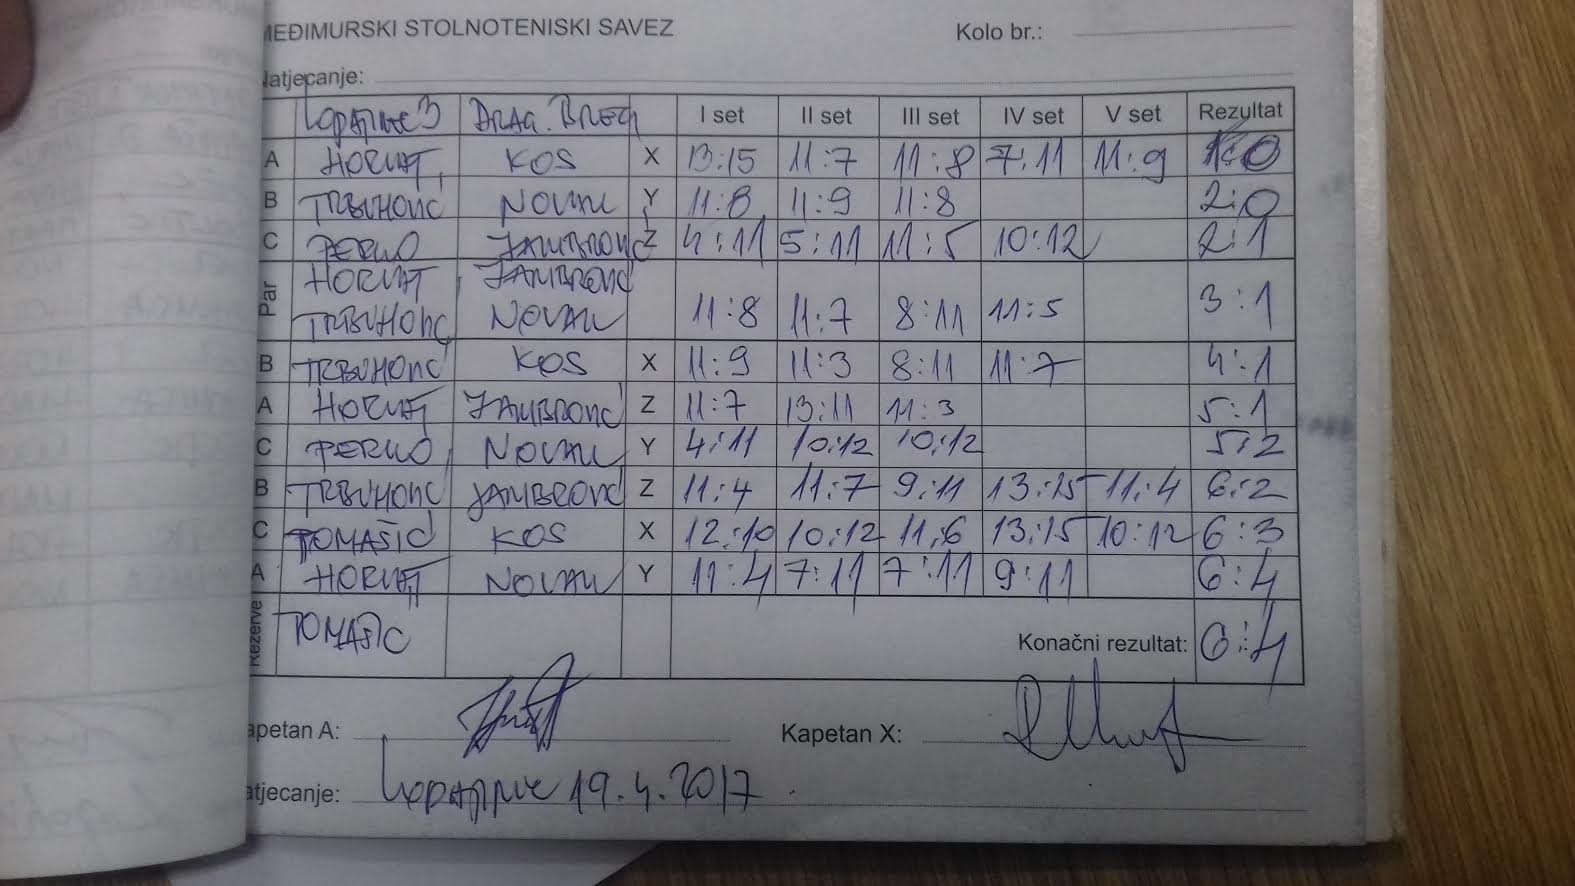 MEĐIMURSKI STOLNOTENISKI SAVEZ Kolo br.:
Natjecanje:
LOPATINEC 3 DRAG. BREG I set II set III set IV set V set Rezultat
A HORVAT KOS X 13:15 11:7 11:8 7:11 11:9 1:0
B TRBUHOVIĆ NOVAK Y 11:8 11:9 11:8 2:0
C PERKO JAMBROVIĆ Z 4:11 5:11 11:5 10:12 2:1
Par HORVAT JAMBROVIĆ
TRBUHOVIĆ NOVAK 11:8 11:7 8:11 11:5 3:1
B TRBUHOVIĆ KOS X 11:9 11:3 8:11 11:7 4:1
A HORVAT JAMBROVIĆ Z 11:7 13:11 11:3 5:1
C PERKO NOVAK Y 4:11 10:12 10:12 5:2
B TRBUHOVIĆ JAMBROVIĆ Z 11:4 11:7 9:11 13:15 11:4 6:2
C TOMAŠIĆ KOS X 12:10 10:12 11:6 13:15 10:12 6:3
A HORVAT NOVAK Y 11:4 7:11 7:11 9:11 6:4
Rezerve TOMAŠIĆ Konačni rezultat: 6:4
Kapetan A: Kapetan X:
Natjecanje: LOPATINEC 19.4.2017.